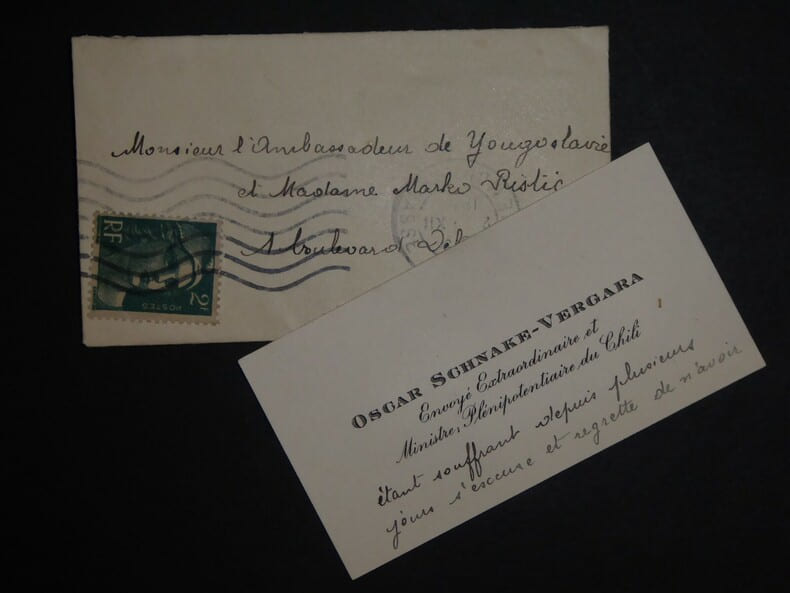 Monsieur l'Ambassadeur de Yougoslavie
et Madame Marko Ristic
1 boulevard
RF
2F
POSTES
OSCAR SCHNAKE-VERGARA
Envoyé Extraordinaire et
Ministre Plénipotentiaire du Chili
étant souffrant depuis plusieurs
jours s'excuse et regrette de n'avoir